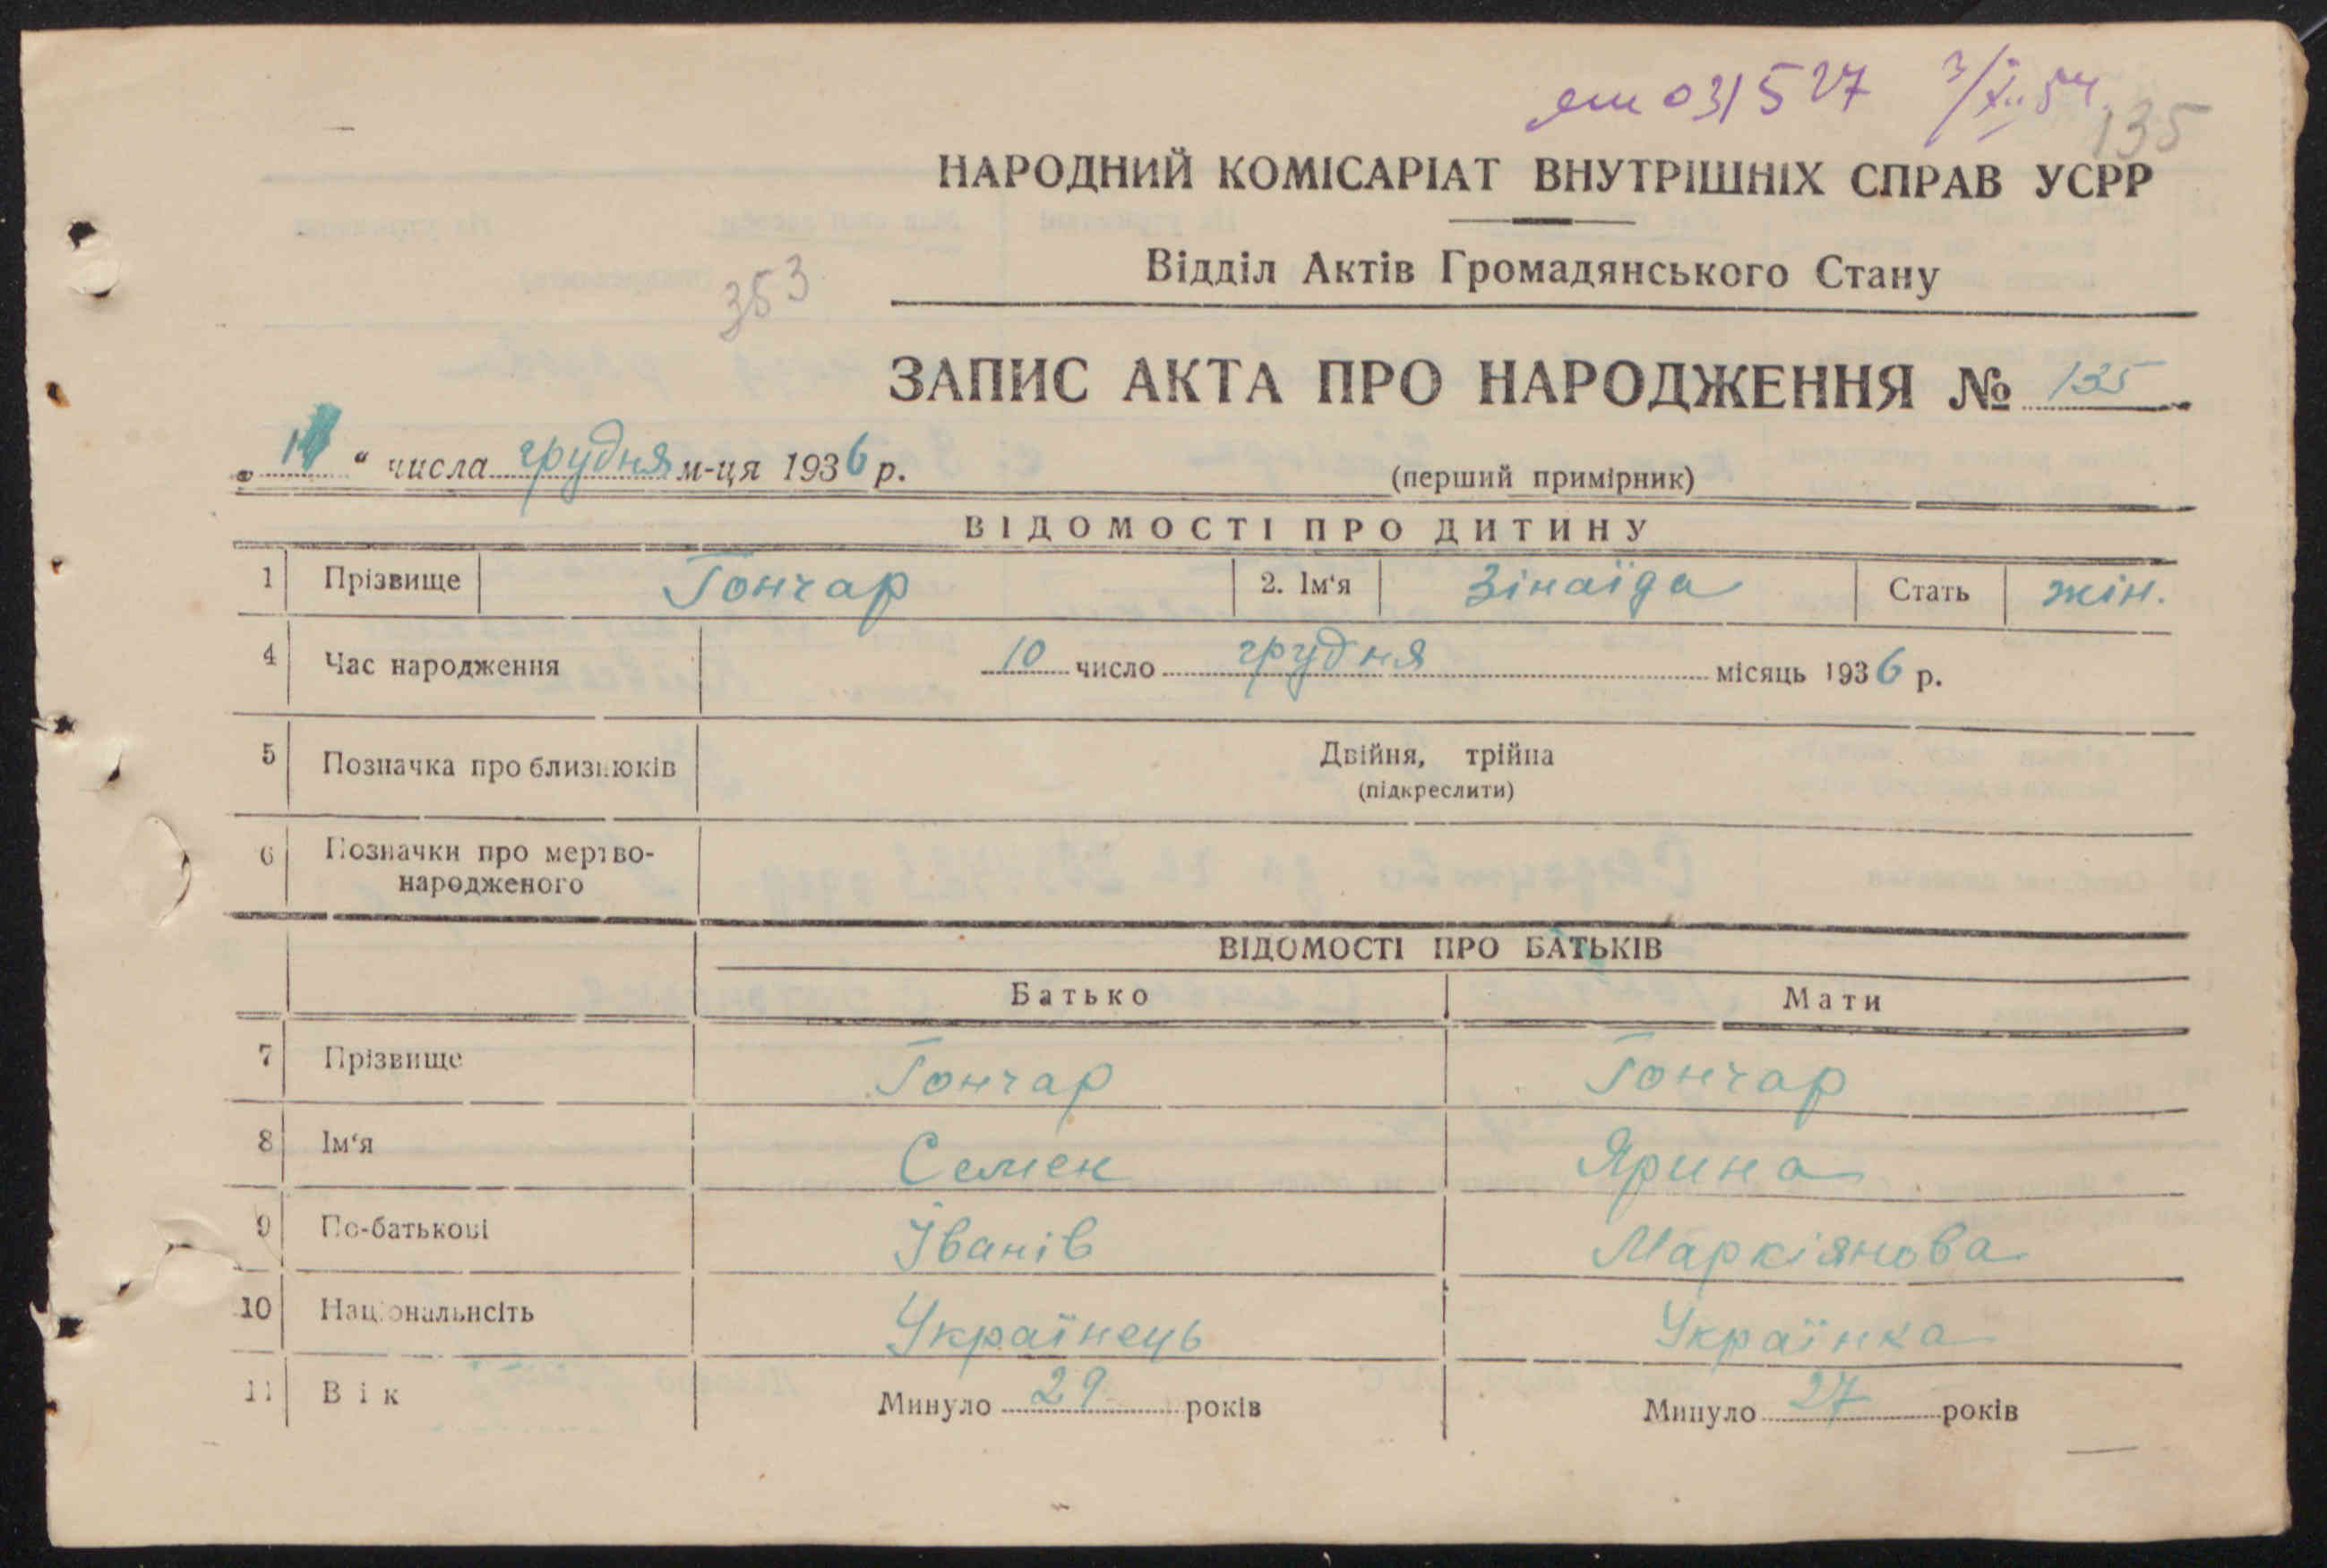 031527 3/XII 54
135
НАРОДНИЙ КОМІСАРІАТ ВНУТРІШНІХ СПРАВ УСРР
Відділ Актів Громадянського Стану
353
ЗАПИС АКТА ПРО НАРОДЖЕННЯ № 135
„ “ числа грудня м-ця 1936 р.
(перший примірник)
ВІДОМОСТІ ПРО ДИТИНУ
1 Прізвище Гончар 2. Ім‘я Зінаїда Стать жін.
4 Час народження 10 число грудня місяць 1936 р.
5 Позначка про близнюків Двійня, трійна
(підкреслити)
6 Позначки про мертво-
народженого
ВІДОМОСТІ ПРО БАТЬКІВ
Батько Мати
7 Прізвище Гончар Гончар
8 Ім‘я Семен Ярина
9 По-батькові Іванів Маркіянова
10 Національнсіть Українець Українка
11 Вік Минуло 29 років Минуло 27 років